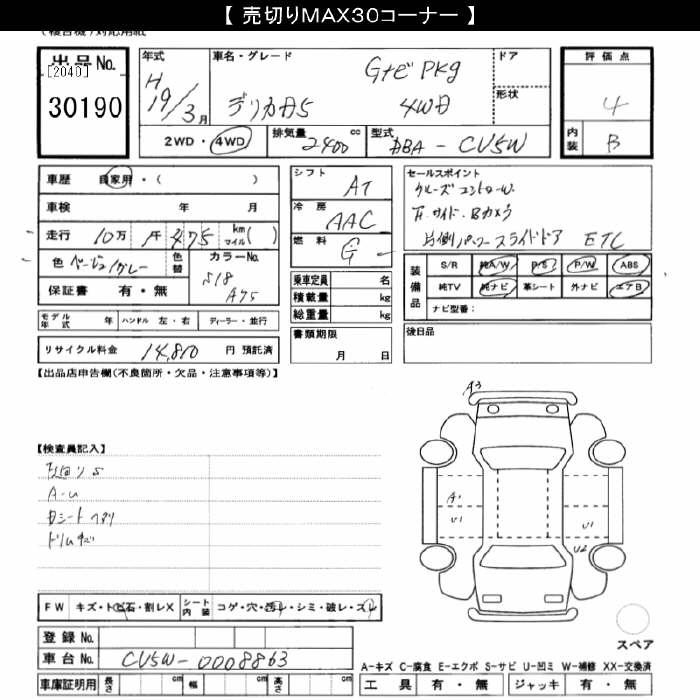 【 売切りMAX30コーナー 】
出品No.
[2040]
30190
年式
H
19/3月
車名・グレード
Gナビ PKg
デリカD5 4WD
ドア
形状
2WD・4WD
排気量
2400 cc
型式
DBA-CV5W
評価点
4
内装
B
車歴 自家用・( )
車検 年 月
走行 10万 千 475 km マイル( )
色 ベージュ/グレー
色替
カラーNo.
S18
A75
保証書 有・無
モデル年式 年 ハンドル 左・右 ディーラー・並行
リサイクル料金 14,810 円 預託済
シフト AT
冷房 AAC
燃料 G
乗車定員 名
積載量 kg
総重量 kg
書類期限
月 日
セールスポイント
クルーズコントロール
片側パワースライドドア ETC
装備品
S/R 純A/W P/S P/W ABS
純TV 純ナビ 革シート 外ナビ エアB
ナビ型番:
後日品
【出品店申告欄(不良箇所・欠品・注意事項等)】
【検査員記入】
A-U
A3
A1
U1
U1
U2
スペア
FW キズ・トビ石・割レX
シート内装 コゲ・穴・汚レ・シミ・破レ・スレ
登録No.
車台No. CV5W-0008863
車庫証明用 長さ cm 幅 cm 高さ cm
A-キズ C-腐食 E-エクボ S-サビ U-凹ミ W-補修 XX-交換済
工具 有・無 ジャッキ 有・無